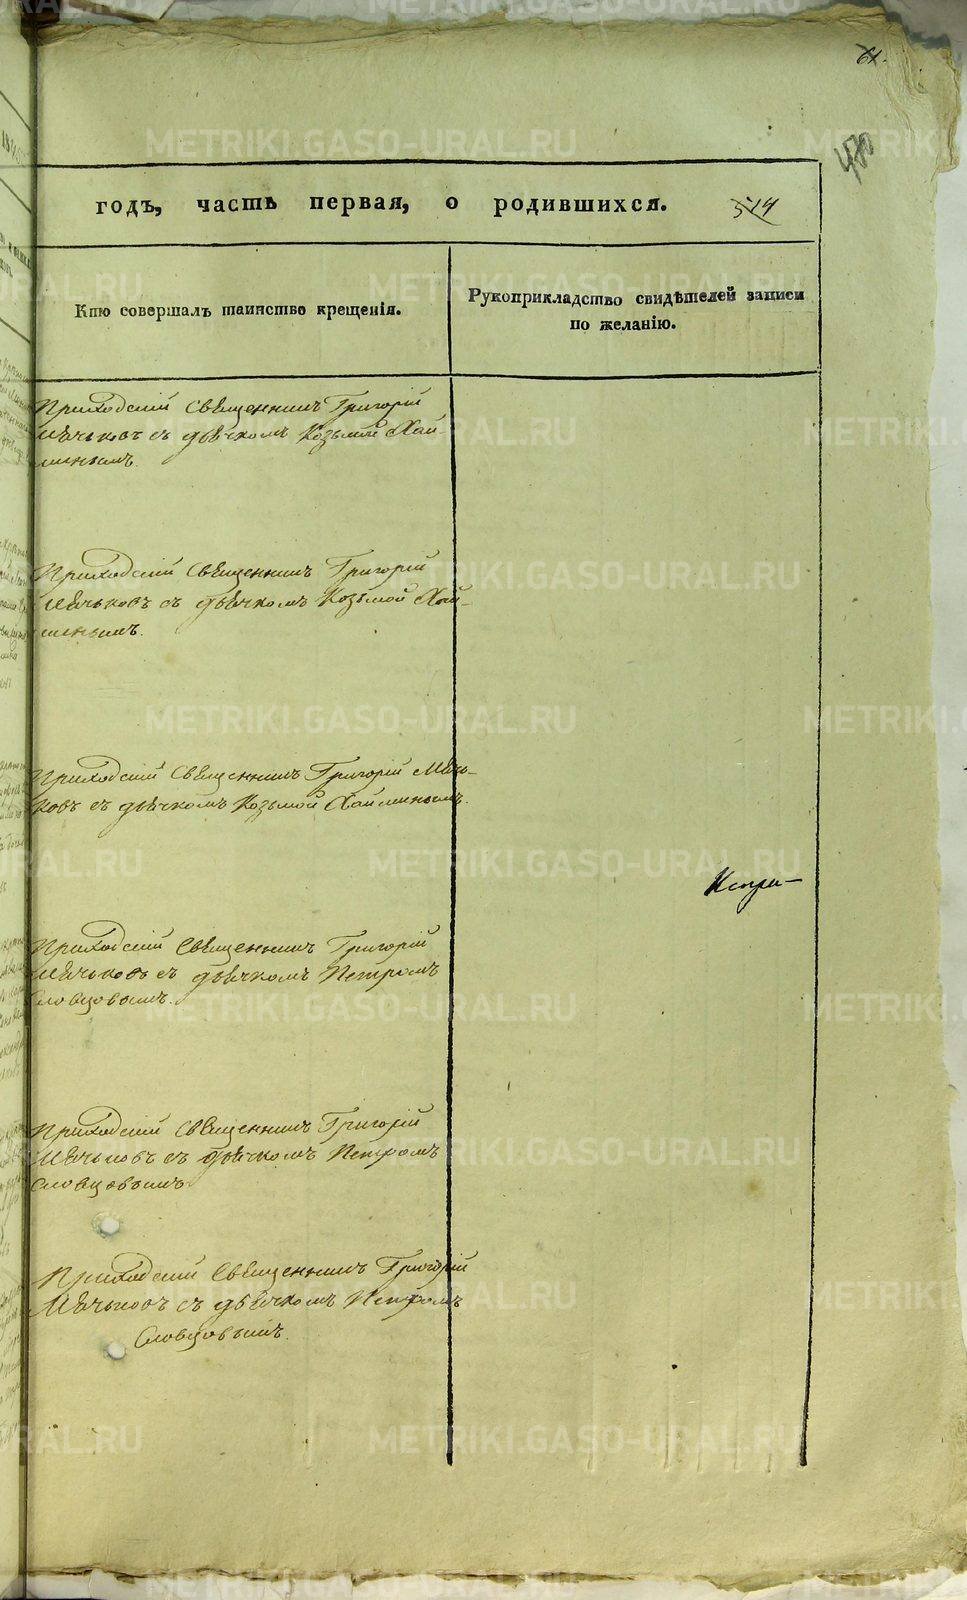 61.
470
годъ, часть первая, о родившихся. 514
Кто совершалъ таинство крещенія.
Рукоприкладство свидѣтелей записи
по желанію.
Приходскій Священникъ Григорій
Мѣчьковъ съ дьячкомъ Козьмой Хай-
миньимъ.
Приходскій Священникъ Григорій
Мѣчьковъ съ дьячкомъ Козьмой Хай-
миньимъ.
Приходскій Священникъ Григорій Мѣчь-
ковъ съ дьячкомъ Козьмой Хайминьимъ.
Приходскій Священникъ Григорій
Мѣчьковъ съ дьячкомъ Петромъ
Словцовымъ.
Приходскій Священникъ Григорій
Мѣчьковъ съ дьячкомъ Петромъ
Словцовымъ.
Приходскій Священникъ Григорій
Мѣчьковъ съ дьячкомъ Петромъ
Словцовымъ.
METRIKI.GASO-URAL.RU